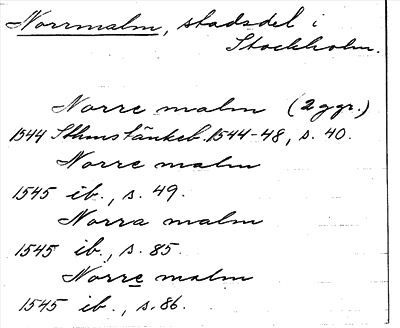 Norrmalm, stadsdel i
Stockholm.
Norre malm (2 ggr.)
1544 Sthms tänkeb. 1544-48, s. 40.
Norre malm
1545 ib., s. 49.
Norra malm
1545 ib., s. 85.
Norre malm
1545 ib., s. 86.